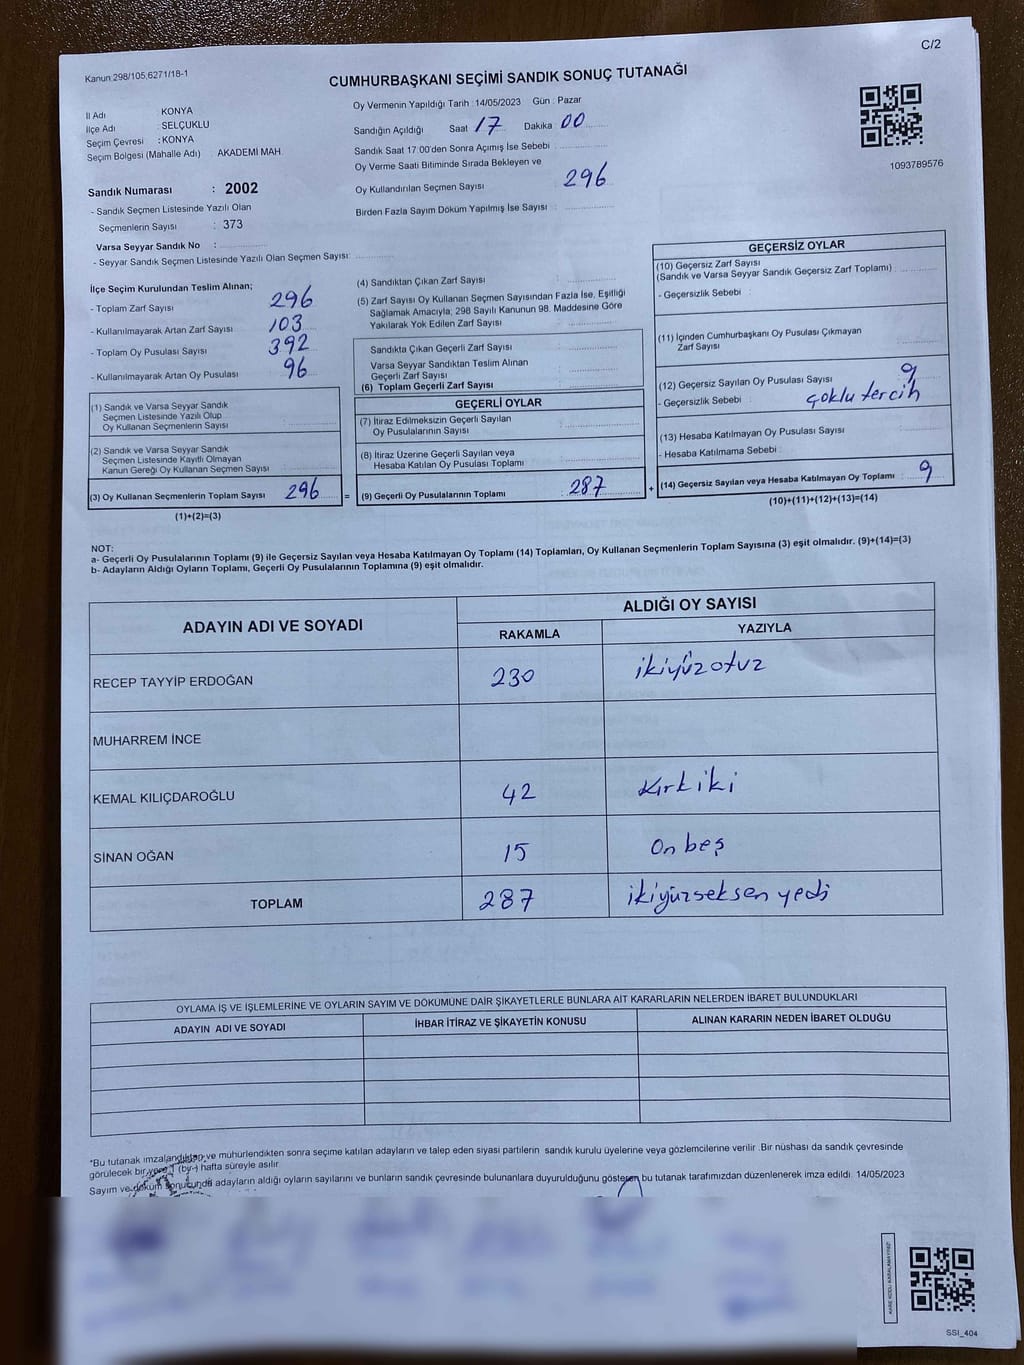 C/2
Kanun:298/105,6271/18-1
CUMHURBAŞKANI SEÇİMİ SANDIK SONUÇ TUTANAĞI
İl Adı KONYA
İlçe Adı : SELÇUKLU
Seçim Çevresi : KONYA
Seçim Bölgesi (Mahalle Adı) : AKADEMİ MAH.
Oy Vermenin Yapıldığı Tarih : 14/05/2023 Gün : Pazar
Sandığın Açıldığı Saat 17 Dakika 00
Sandık Saat 17:00'den Sonra Açımış İse Sebebi :
Oy Verme Saati Bitiminde Sırada Bekleyen ve
Oy Kullandırılan Seçmen Sayısı : 296
Birden Fazla Sayım Döküm Yapılmış İse Sayısı :
1093789576
Sandık Numarası : 2002
- Sandık Seçmen Listesinde Yazılı Olan
Seçmenlerin Sayısı : 373
Varsa Seyyar Sandık No :
- Seyyar Sandık Seçmen Listesinde Yazılı Olan Seçmen Sayısı:
İlçe Seçim Kurulundan Teslim Alınan;
- Toplam Zarf Sayısı 296
- Kullanılmayarak Artan Zarf Sayısı 103
- Toplam Oy Pusulası Sayısı 392
- Kullanılmayarak Artan Oy Pusulası 96
(1) Sandık ve Varsa Seyyar Sandık
Seçmen Listesinde Yazılı Olup
Oy Kullanan Seçmenlerin Sayısı :
(2) Sandık ve Varsa Seyyar Sandık
Seçmen Listesinde Kayıtlı Olmayan
Kanun Gereği Oy Kullanan Seçmen Sayısı :
(3) Oy Kullanan Seçmenlerin Toplam Sayısı 296
(1)+(2)=(3)
=
(4) Sandıktan Çıkan Zarf Sayısı :
(5) Zarf Sayısı Oy Kullanan Seçmen Sayısından Fazla İse, Eşitliği
Sağlamak Amacıyla; 298 Sayılı Kanunun 98. Maddesine Göre
Yakılarak Yok Edilen Zarf Sayısı :
Sandıkta Çıkan Geçerli Zarf Sayısı :
Varsa Seyyar Sandıktan Teslim Alınan
Geçerli Zarf Sayısı :
(6) Toplam Geçerli Zarf Sayısı :
GEÇERLİ OYLAR
(7) İtiraz Edilmeksizin Geçerli Sayılan
Oy Pusulalarının Sayısı :
(8) İtiraz Üzerine Geçerli Sayılan veya
Hesaba Katılan Oy Pusulası Toplamı :
(9) Geçerli Oy Pusulalarının Toplamı : 287
+
GEÇERSİZ OYLAR
(10) Geçersiz Zarf Sayısı
(Sandık ve Varsa Seyyar Sandık Geçersiz Zarf Toplamı) :
- Geçersizlik Sebebi :
(11) İçinden Cumhurbaşkanı Oy Pusulası Çıkmayan
Zarf Sayısı :
(12) Geçersiz Sayılan Oy Pusulası Sayısı : 9
- Geçersizlik Sebebi : çoklu tercih
(13) Hesaba Katılmayan Oy Pusulası Sayısı :
- Hesaba Katılmama Sebebi :
(14) Geçersiz Sayılan veya Hesaba Katılmayan Oy Toplamı : 9
(10)+(11)+(12)+(13)=(14)
NOT:
a- Geçerli Oy Pusulalarının Toplamı (9) ile Geçersiz Sayılan veya Hesaba Katılmayan Oy Toplamı (14) Toplamları, Oy Kullanan Seçmenlerin Toplam Sayısına (3) eşit olmalıdır. (9)+(14)=(3)
b- Adayların Aldığı Oyların Toplamı, Geçerli Oy Pusulalarının Toplamına (9) eşit olmalıdır.
ADAYIN ADI VE SOYADI ALDIĞI OY SAYISI
RAKAMLA YAZIYLA
RECEP TAYYİP ERDOĞAN 230 ikiyüzotuz
MUHARREM İNCE
KEMAL KILIÇDAROĞLU 42 Kırkiki
SİNAN OĞAN 15 On beş
TOPLAM 287 ikiyüzseksen yedi
OYLAMA İŞ VE İŞLEMLERİNE VE OYLARIN SAYIM VE DÖKÜMÜNE DAİR ŞİKAYETLERLE BUNLARA AİT KARARLARIN NELERDEN İBARET BULUNDUKLARI
ADAYIN ADI VE SOYADI İHBAR İTİRAZ VE ŞİKAYETİN KONUSU ALINAN KARARIN NEDEN İBARET OLDUĞU
*Bu tutanak imzalandıktan ve mühürlendikten sonra seçime katılan adayların ve talep eden siyasi partilerin sandık kurulu üyelerine veya gözlemcilerine verilir .Bir nüshası da sandık çevresinde
görülecek bir yere 1 (bir) hafta süreyle asılır.
Sayım ve döküm sonucunda adayların aldığı oyların sayılarını ve bunların sandık çevresinde bulunanlara duyurulduğunu gösteren bu tutanak tarafımızdan düzenlenerek imza edildi. 14/05/2023
KARE KODU KARALAMAYINIZ!
SSI_404